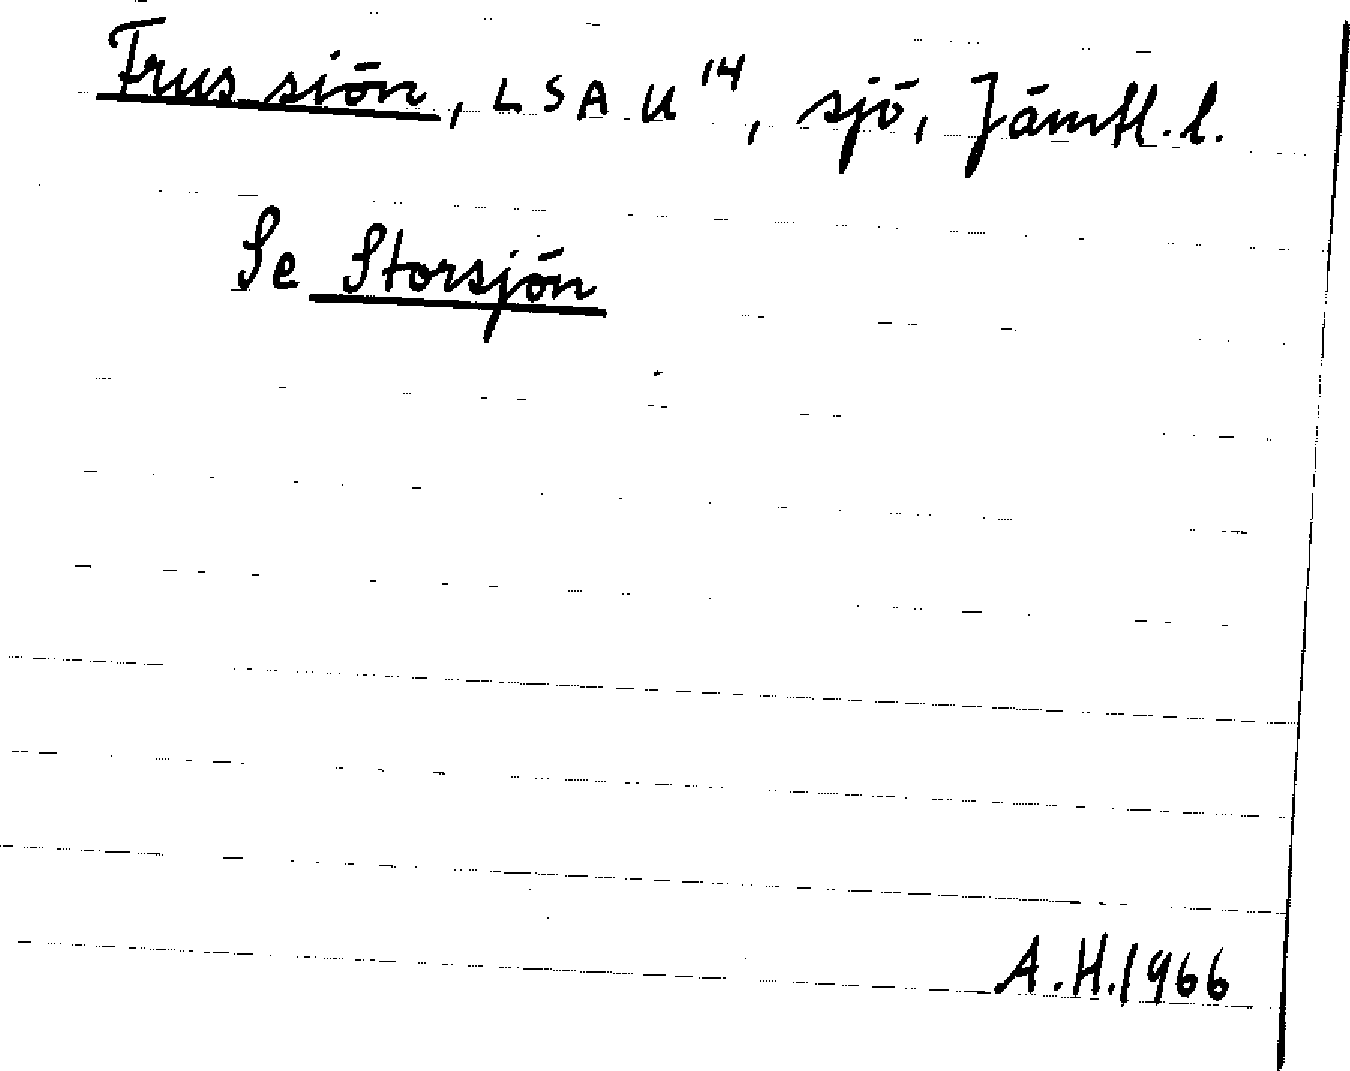 Frus siön, L S A U 14, sjö, Jämtl. l.
Se Storsjön
A.H. 1966